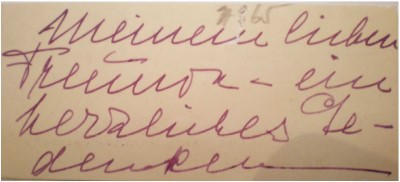 No 65
Meinem lieben
Freunde - ein
herzliches Ge-
denken